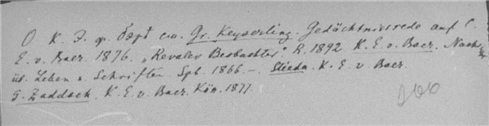 О К. Э. ф. Бэрѣ см. Gr. Keyserling. Gedächtnissrede auf C.
E. v. Baer. 1876. „Revaler Beobachter" R. 1892. K. E. v. Baer. Nachr.
üb. Leben u. Schriften. Spb. 1866. –. Stieda. K. E. v. Baer.
G. Zaddach. K. E. v. Baer. Kön. 1877.